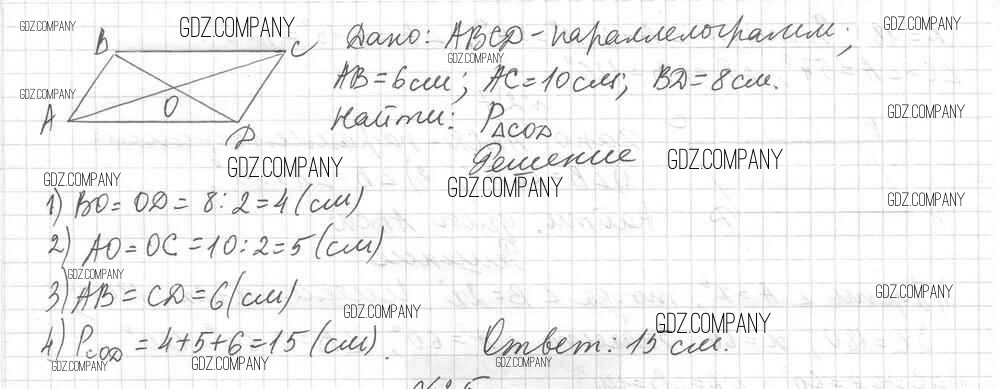 GDZ.COMPANY GDZ.COMPANY GDZ.COMPANY
B C Дано: ABCD - параллелограмм;
GDZ.COMPANY
GDZ.COMPANY AB = 6 см; AC = 10 см; BD = 8 см.
A O D Найти: P△COD
GDZ.COMPANY
Решение
GDZ.COMPANY GDZ.COMPANY
GDZ.COMPANY GDZ.COMPANY
1) BO = OD = 8 : 2 = 4 (см)
GDZ.COMPANY
2) AO = OC = 10 : 2 = 5 (см)
GDZ.COMPANY
3) AB = CD = 6 (см)
GDZ.COMPANY
GDZ.COMPANY GDZ.COMPANY
4) PCOD = 4 + 5 + 6 = 15 (см). Ответ: 15 см.
GDZ.COMPANY GDZ.COMPANY GDZ.COMPANY